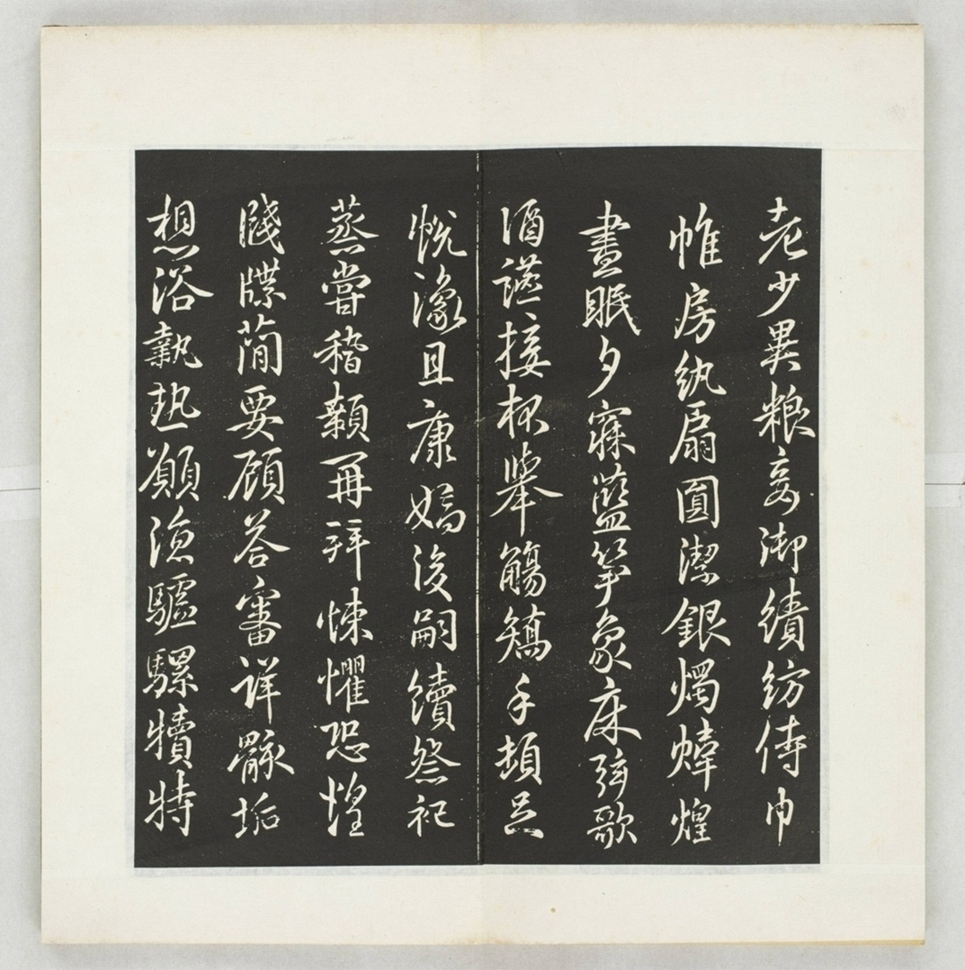 老少異粮妾御績紡侍巾
帷房紈扇圓潔銀燭煒煌
晝眠夕寐藍笋象床弦歌
酒讌接杯舉觴矯手頓足
悅豫且康嫡後嗣續祭祀
蒸嘗稽顙再拜悚懼恐惶
牋牒簡要顧答審詳骸垢
想浴執熱願涼驢騾犢特